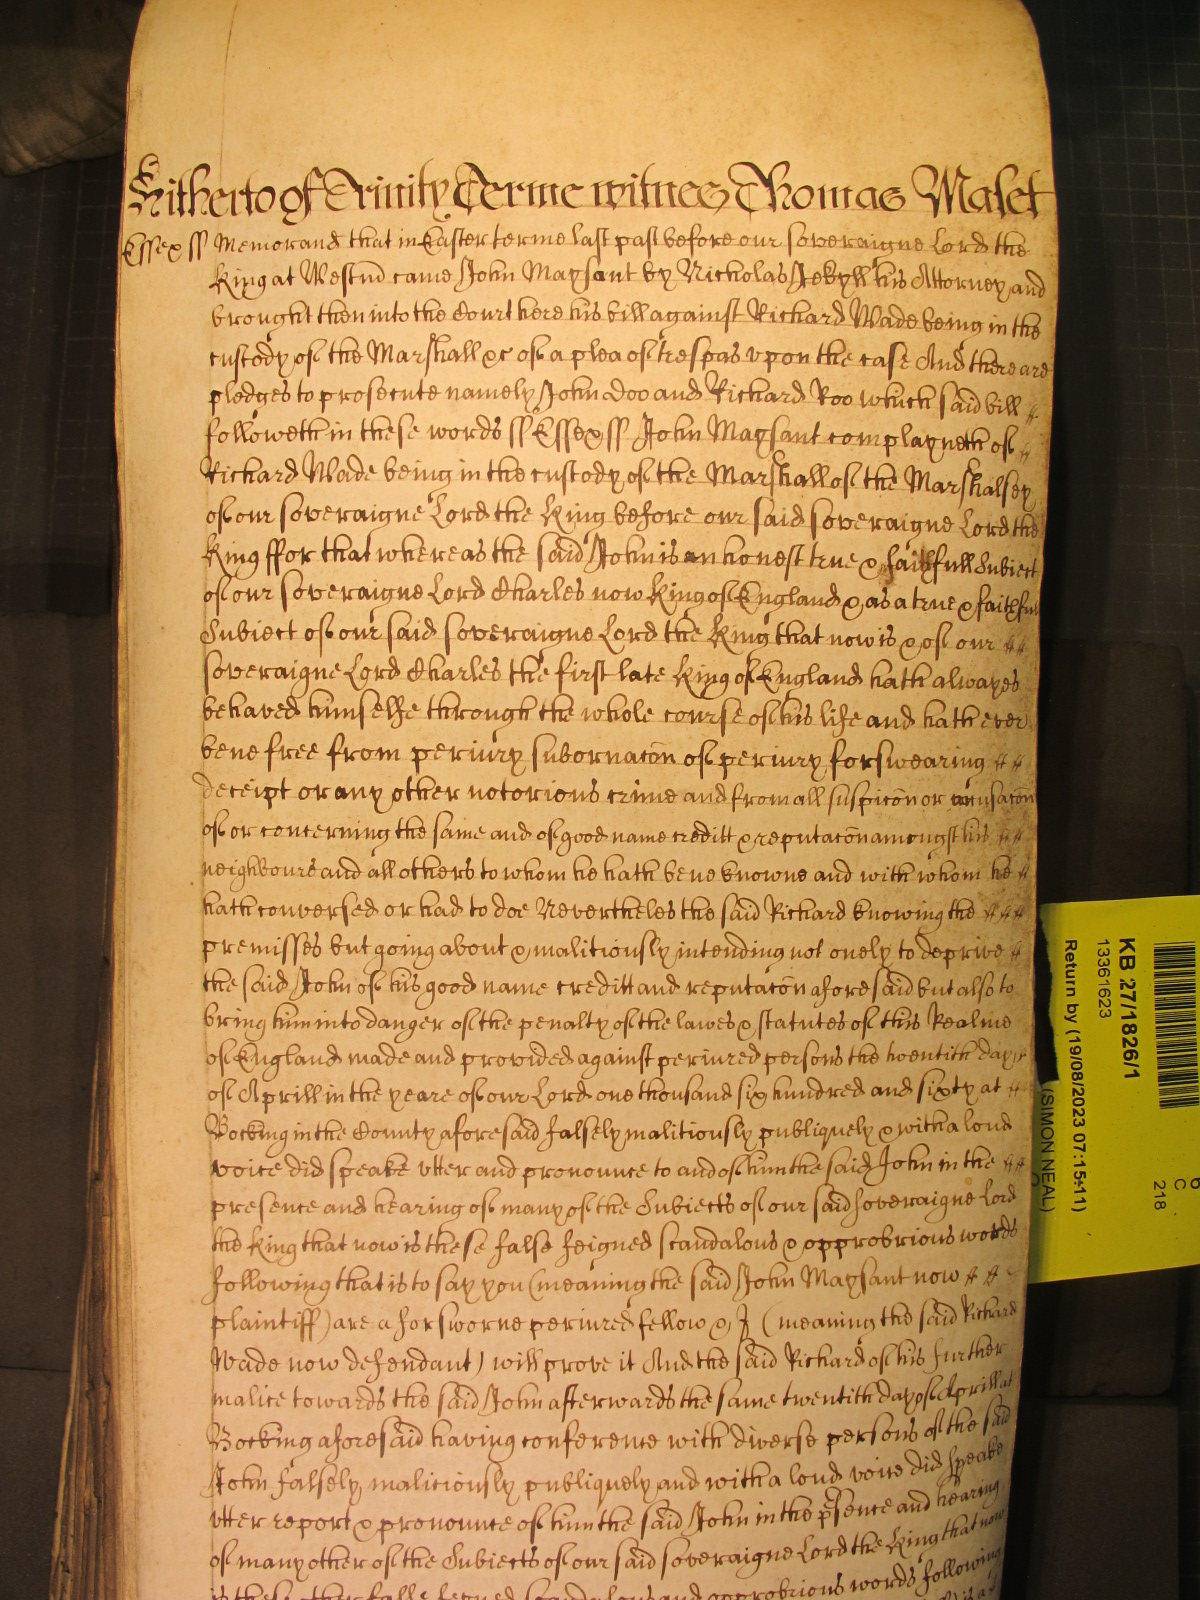 Hitherto of Trinity Terme witnes Thomas Malet
Essex ss Memorand that in Easter terme last past before our soveraigne Lord the
King at Westm came John Maysant by Nicholas Jekyll his Attorney and
brought then into the Court here his bill against Richard Wade being in the
custody of the Marshall &c of a plea of trespas upon the case And there are
pledges to prosecute namely John Doo and Richard Roo which said bill
followeth in these words ss Essex ss John Maysant complayneth of
Richard Wade being in the custody of the Marshall of the Marshalsey
of our soveraigne Lord the King before our said soveraigne Lord the
King ffor that whereas the said John is an honest true & faithfull Subiect
of our soveraigne Lord Charles now King of England & as a true & faithfull
Subiect of our said soveraigne Lord the King that now is & of our
soveraigne Lord Charles the first late King of England hath alwayes
behaved himselfe through the whole course of his life and hath ever
bene free from periury subornacon of periury forswearing
deceipt or any other notorious crime and from all suspicon or accusacon
of or concerning the same and of good name creditt & reputacon amongst his
neighboures and all others to whom he hath bene knowne and with whom he
hath conversed or had to doe Nevertheles the said Richard knowing the
premisses but going about & malitiously intending not onely to deprive
the said John of his good name creditt and reputacon aforesaid but also to
bring him into danger of the penalty of the lawes & statutes of this Realme
of England made and provided against periured persons the twentith day
of Aprill in the yeare of our Lord one thousand six hundred and sixty at
Bocking in the County aforesaid falsely malitiously publiquely & with a loud
voice did speake utter and pronounce to and of him the said John in the
presence and hearing of many of the Subiects of our said soveraigne Lord
the King that now is these false feigned scandalous & opprobrious words
following that is to say you (meaning the said John Maysant now
plaintiff) are a forsworne periured fellow & I (meaning the said Richard
Wade now defendant) will prove it And the said Richard of his further
malice towards the said John afterwards the same twentith day of Aprill at
Bocking aforesaid having conference with diverse persons of the said
John falsely maliciously publiquely and with a loud voice did speake
utter report & pronounce of him the said John in the psence and hearing
of many other of the Subiects of our said soveraigne Lord the King that now
is these other false feigned scandalous and opprobrious words following
KB 27/1826/1
13361623
Return by (19/08/2023 07:15:11)
(SIMON NEAL)
C
218